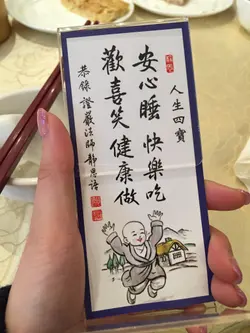 人生四寶
安心睡 快樂吃
歡喜笑 健康做
恭錄 證嚴法師 靜思語